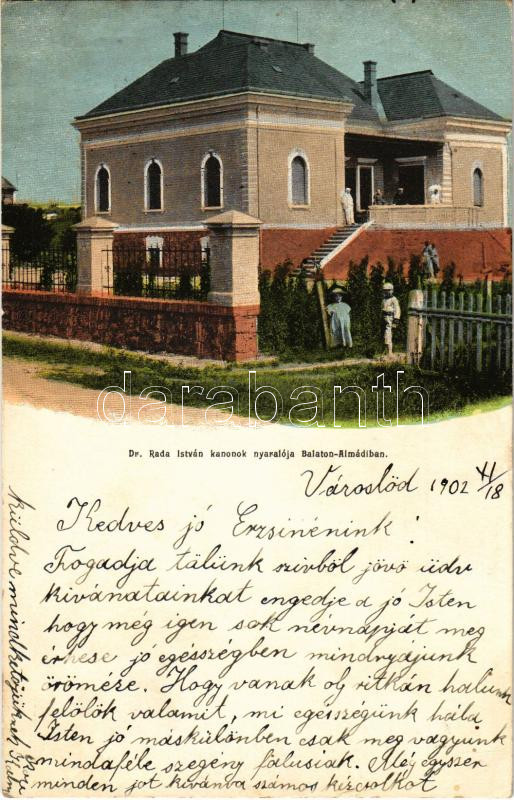 darabanth
Dr. Rada István kanonok nyaralója Balaton-Almádiban.
Városlőd 1902 XI/18
Kedves jó Erzsinénink!
Fogadja tőlünk szivből jövő üdv
kivánatainkat engedje a jó Isten
hogy még igen sok névnapját meg
érhese jó egésségben mindnyájunk
örömére. Hogy vanak oly ritkán halunk
felölök valamit, mi egésségünk hála
Isten jó máskülönben csak meg vagyunk
mindaféle szegény falusiak. Még egyszer
minden jot kivánva számos kézcsolkot
küldve mindketőjüknek